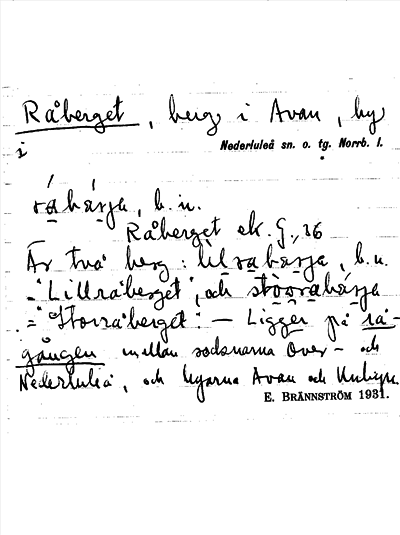 Råberget, berg i Avan, by
i Nederluleå sn. o. tg. Norrb. l.
råbärja, b. n.
Råberget ek. G., 26
Är två berg: lilråbärja, b. n.
= "Lillråberget", och stòoråbärja
= "Storråberget". — Ligger på rå-
gången mellan socknarna Över- och
Nederluleå, och byarna Avan och Unbyn.
E. Brännström 1931.